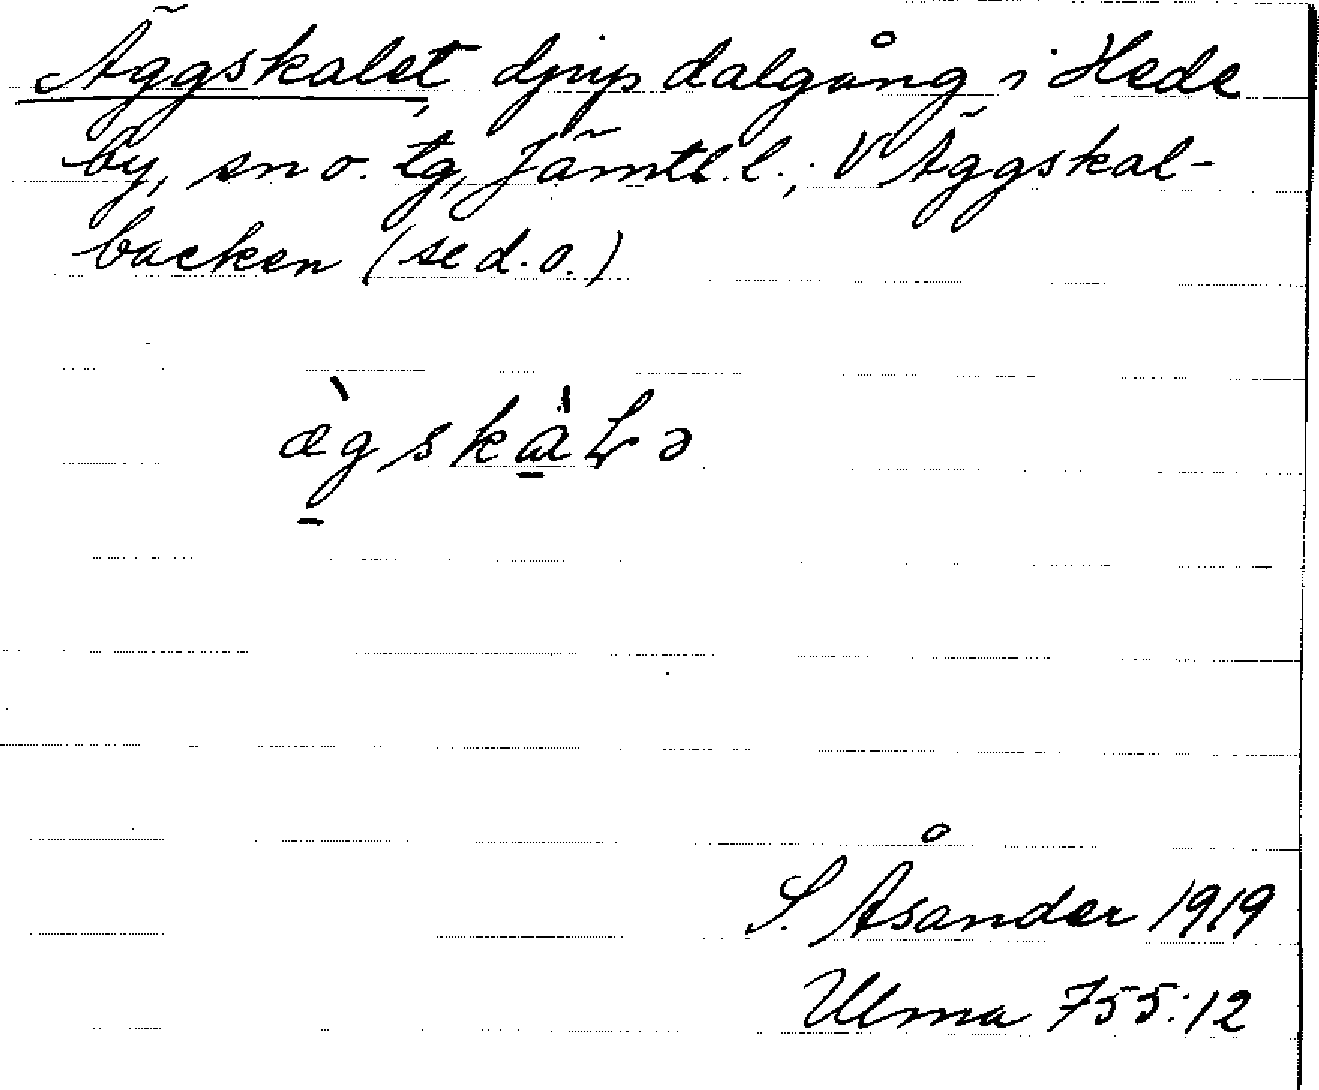 Äggskalet, djup dalgång i Hede
by, sn o. tg, Jämtl. l., V Äggskal-
backen (se d. o.)
æ̀gskàLə
S. Åsander 1919
Ulma 755:12